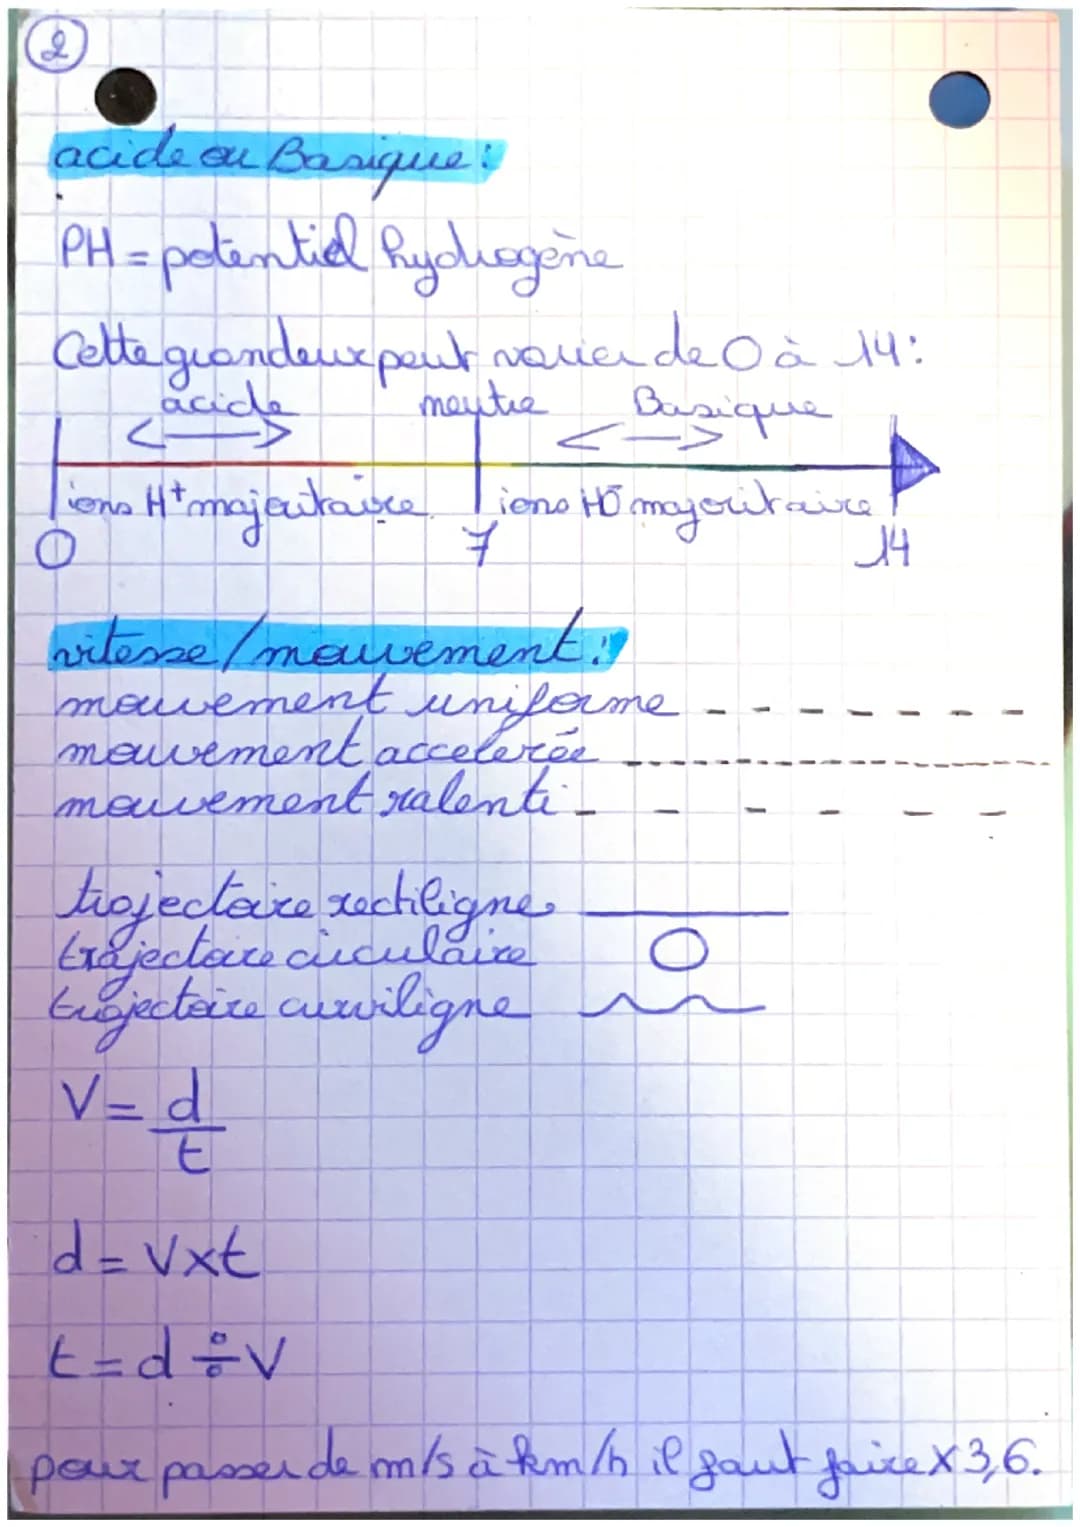 2
acide ou Basique:
PH = potentiel hydrogène
Cette grandeur peut varier de 0 à 14:
acide neutre Basique
ions H⁺ majoritaire ions HO⁻ majoritaire
0 7 14
vitesse/mouvement:
mouvement uniforme
mouvement accelerée
mouvement ralenti
trajectoire rectiligne
trajectoire circulaire
trajectoire curviligne
V = d
t
d = V x t
t = d ÷ V
pour passer de m/s à km/h il faut faire X 3,6.